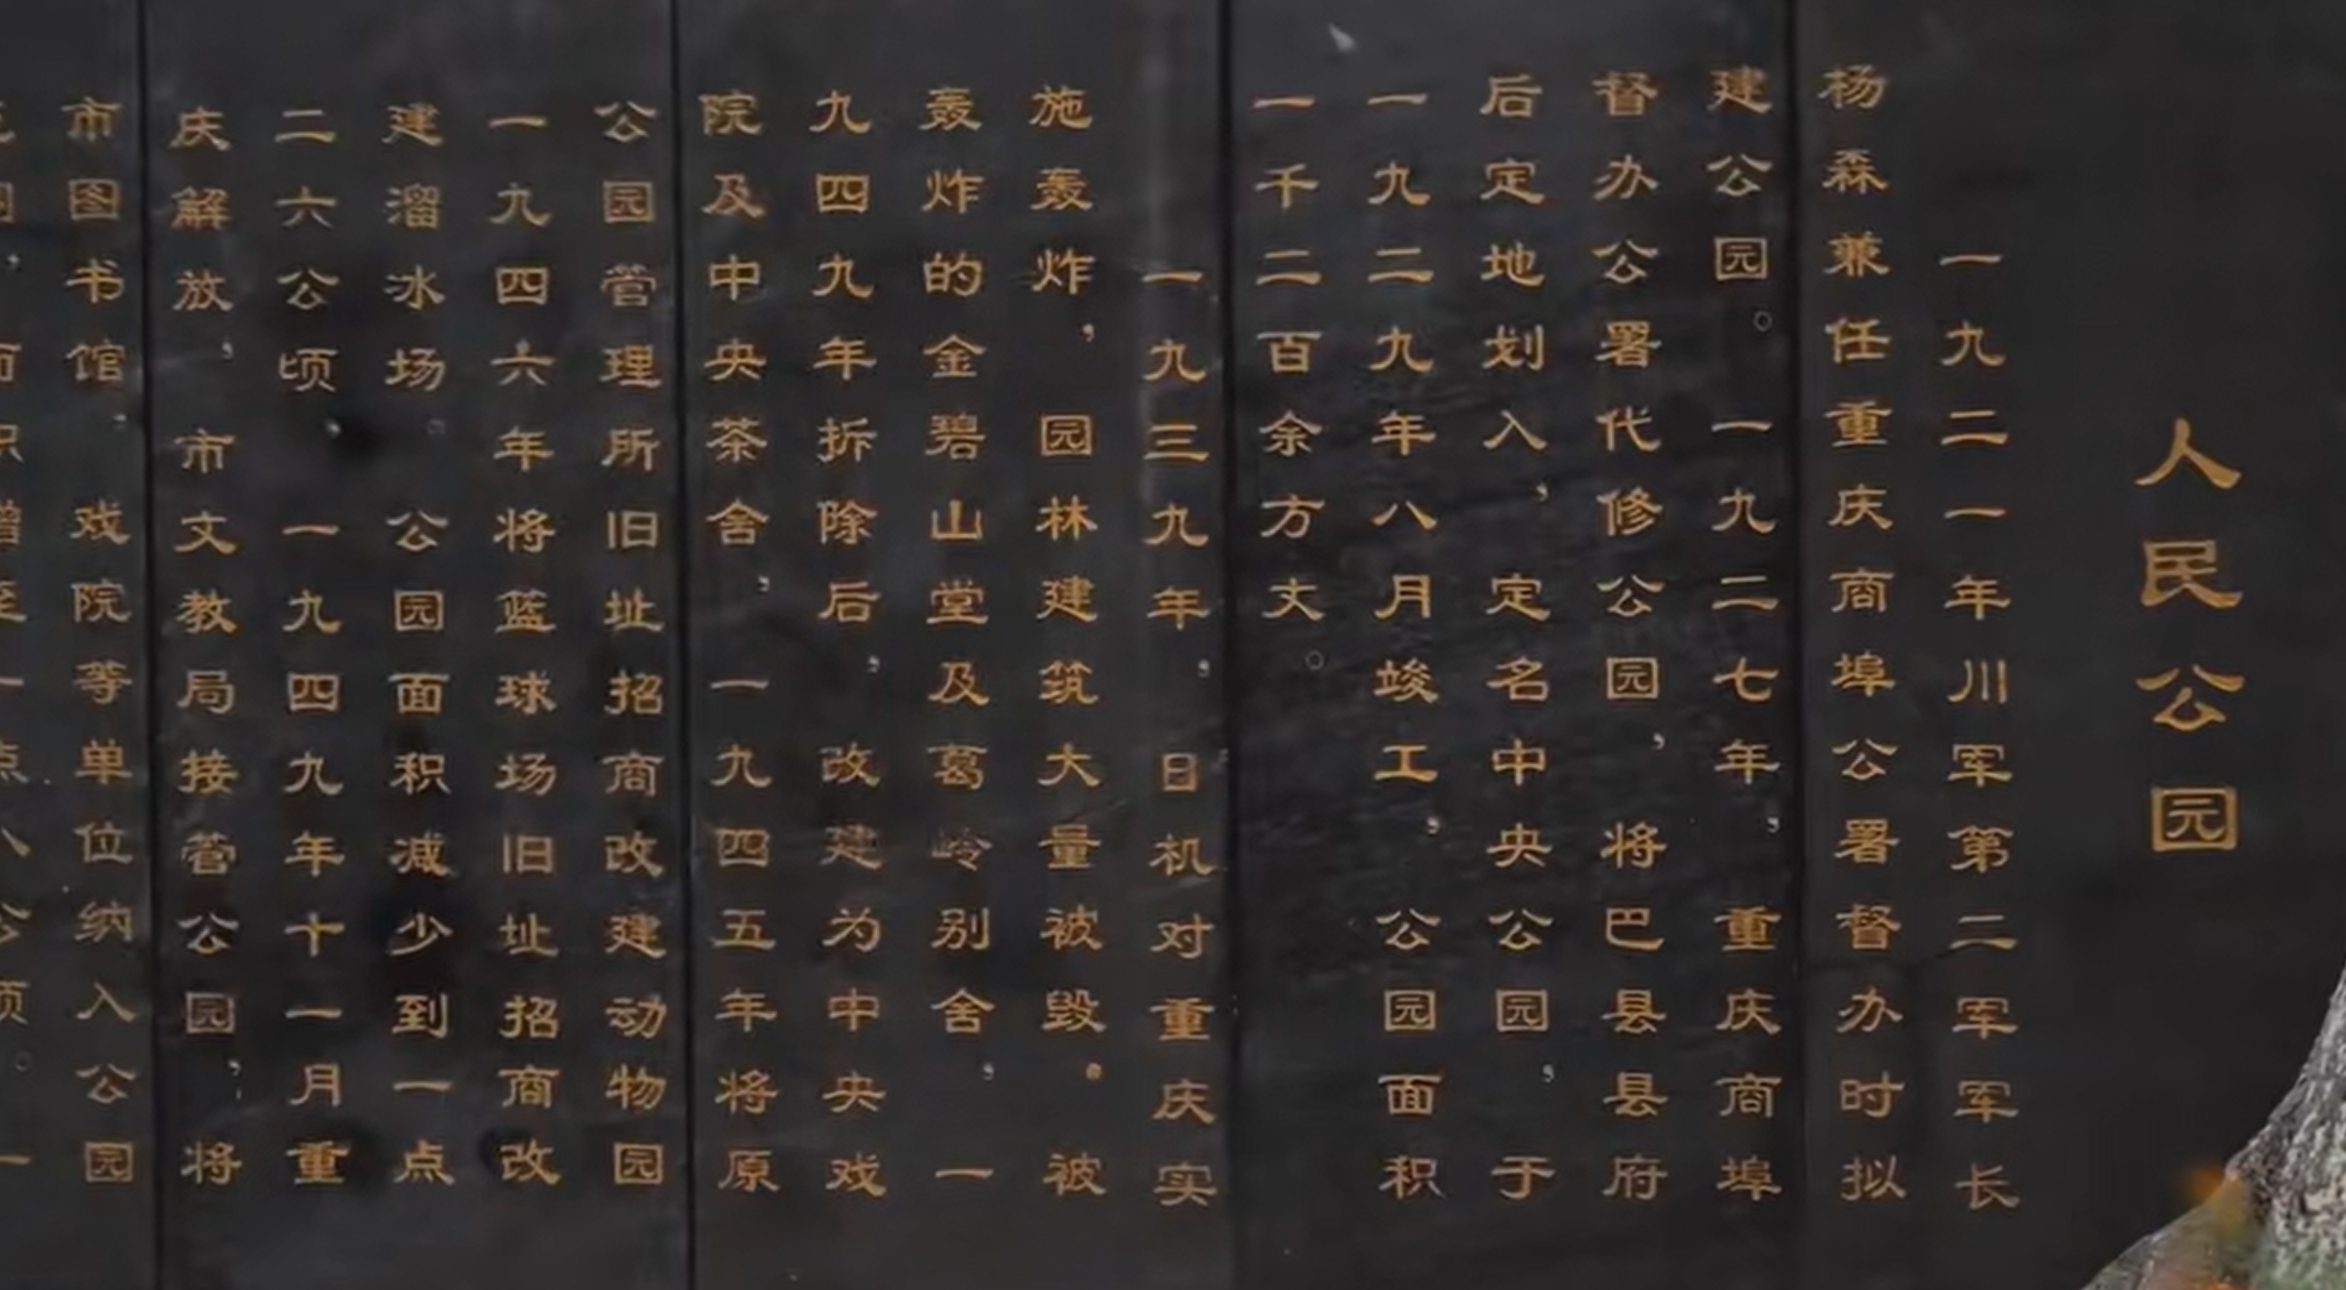 人民公园
一九二一年川军第二军军长
杨森兼任重庆商埠公署督办时拟
建公园。一九二七年，重庆商埠
督办公署代修公园，将巴县县府
后定地划入，定名中央公园，于
一九二九年八月竣工，公园面积
一千二百余方丈。
一九三九年，日机对重庆实
施轰炸，园林建筑大量被毁。被
轰炸的金碧山堂及葛岭别舍，一
九四九年拆除后，改建为中央戏
院及中央茶舍，一九四五年将原
公园管理所旧址招商改建动物园
一九四六年将蓝球场旧址招商改
建溜冰场。公园面积减少到一点
二六公顷，一九四九年十一月重
庆解放，市文教局接营公园，将
市图书馆，戏院等单位纳入公园